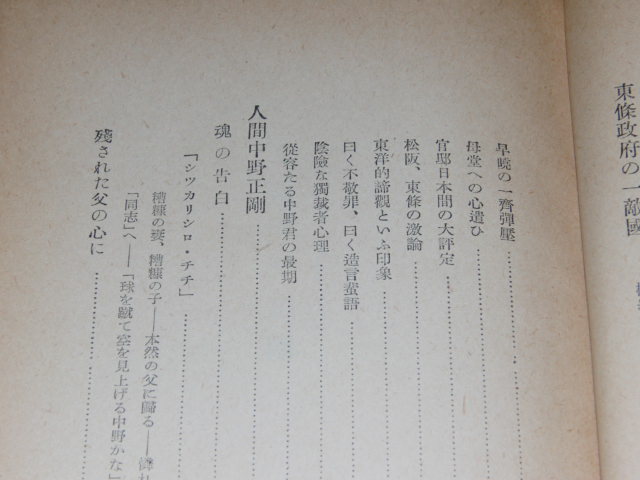 東條政府の一敵國
早曉の一齊彈壓
母堂への心遣ひ
官邸日本間の大評定
松阪、東條の激論
東洋的諦觀といふ印象
曰く不敬罪、曰く造言蜚語
陰險な獨裁者心理
從容たる中野君の最期
人間中野正剛
魂の告白
「シツカリシロ・チチ」
糟糠の妻、糟糠の子――本然の父に歸る――
「同志」へ――「球を蹴て空を見上げる中野かな」
殘された父の心に